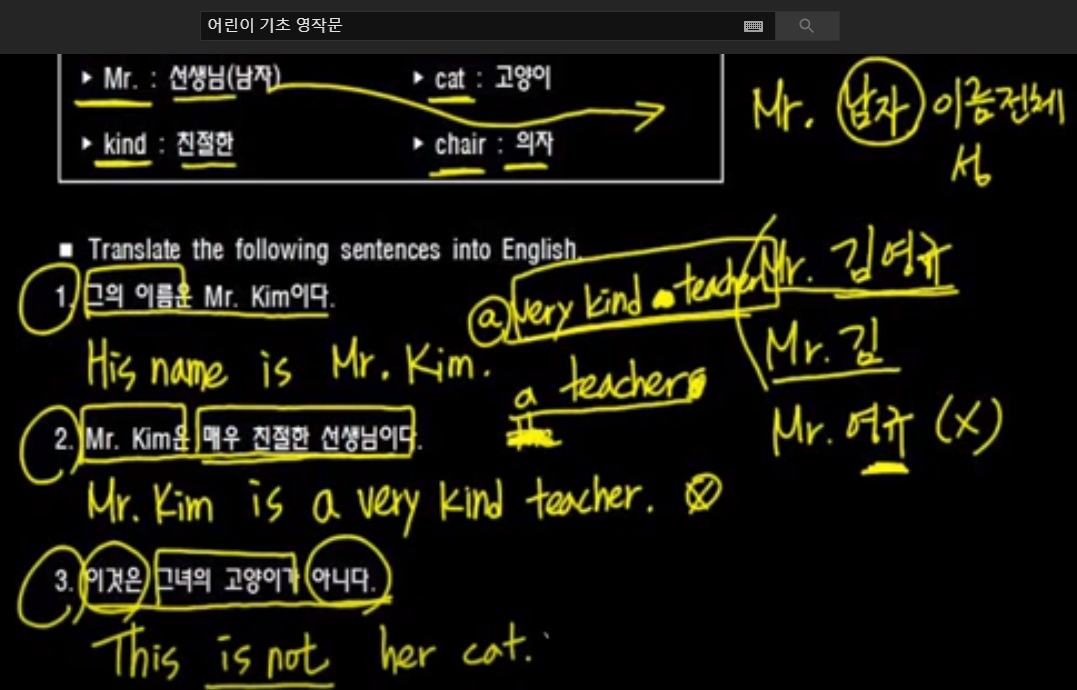 어린이 기초 영작문
▶ Mr. : 선생님(남자) ▶ cat : 고양이
▶ kind : 친절한 ▶ chair : 의자
Mr. 남자 이름전체
성
■ Translate the following sentences into English.
1. 그의 이름은 Mr. Kim이다.
His name is Mr. Kim.
a very kind teacher
a teacher
Mr. 김영규
Mr. 김
Mr. 영규 (X)
2. Mr. Kim은 매우 친절한 선생님이다.
Mr. Kim is a very kind teacher.
3. 이것은 그녀의 고양이가 아니다.
This is not her cat.